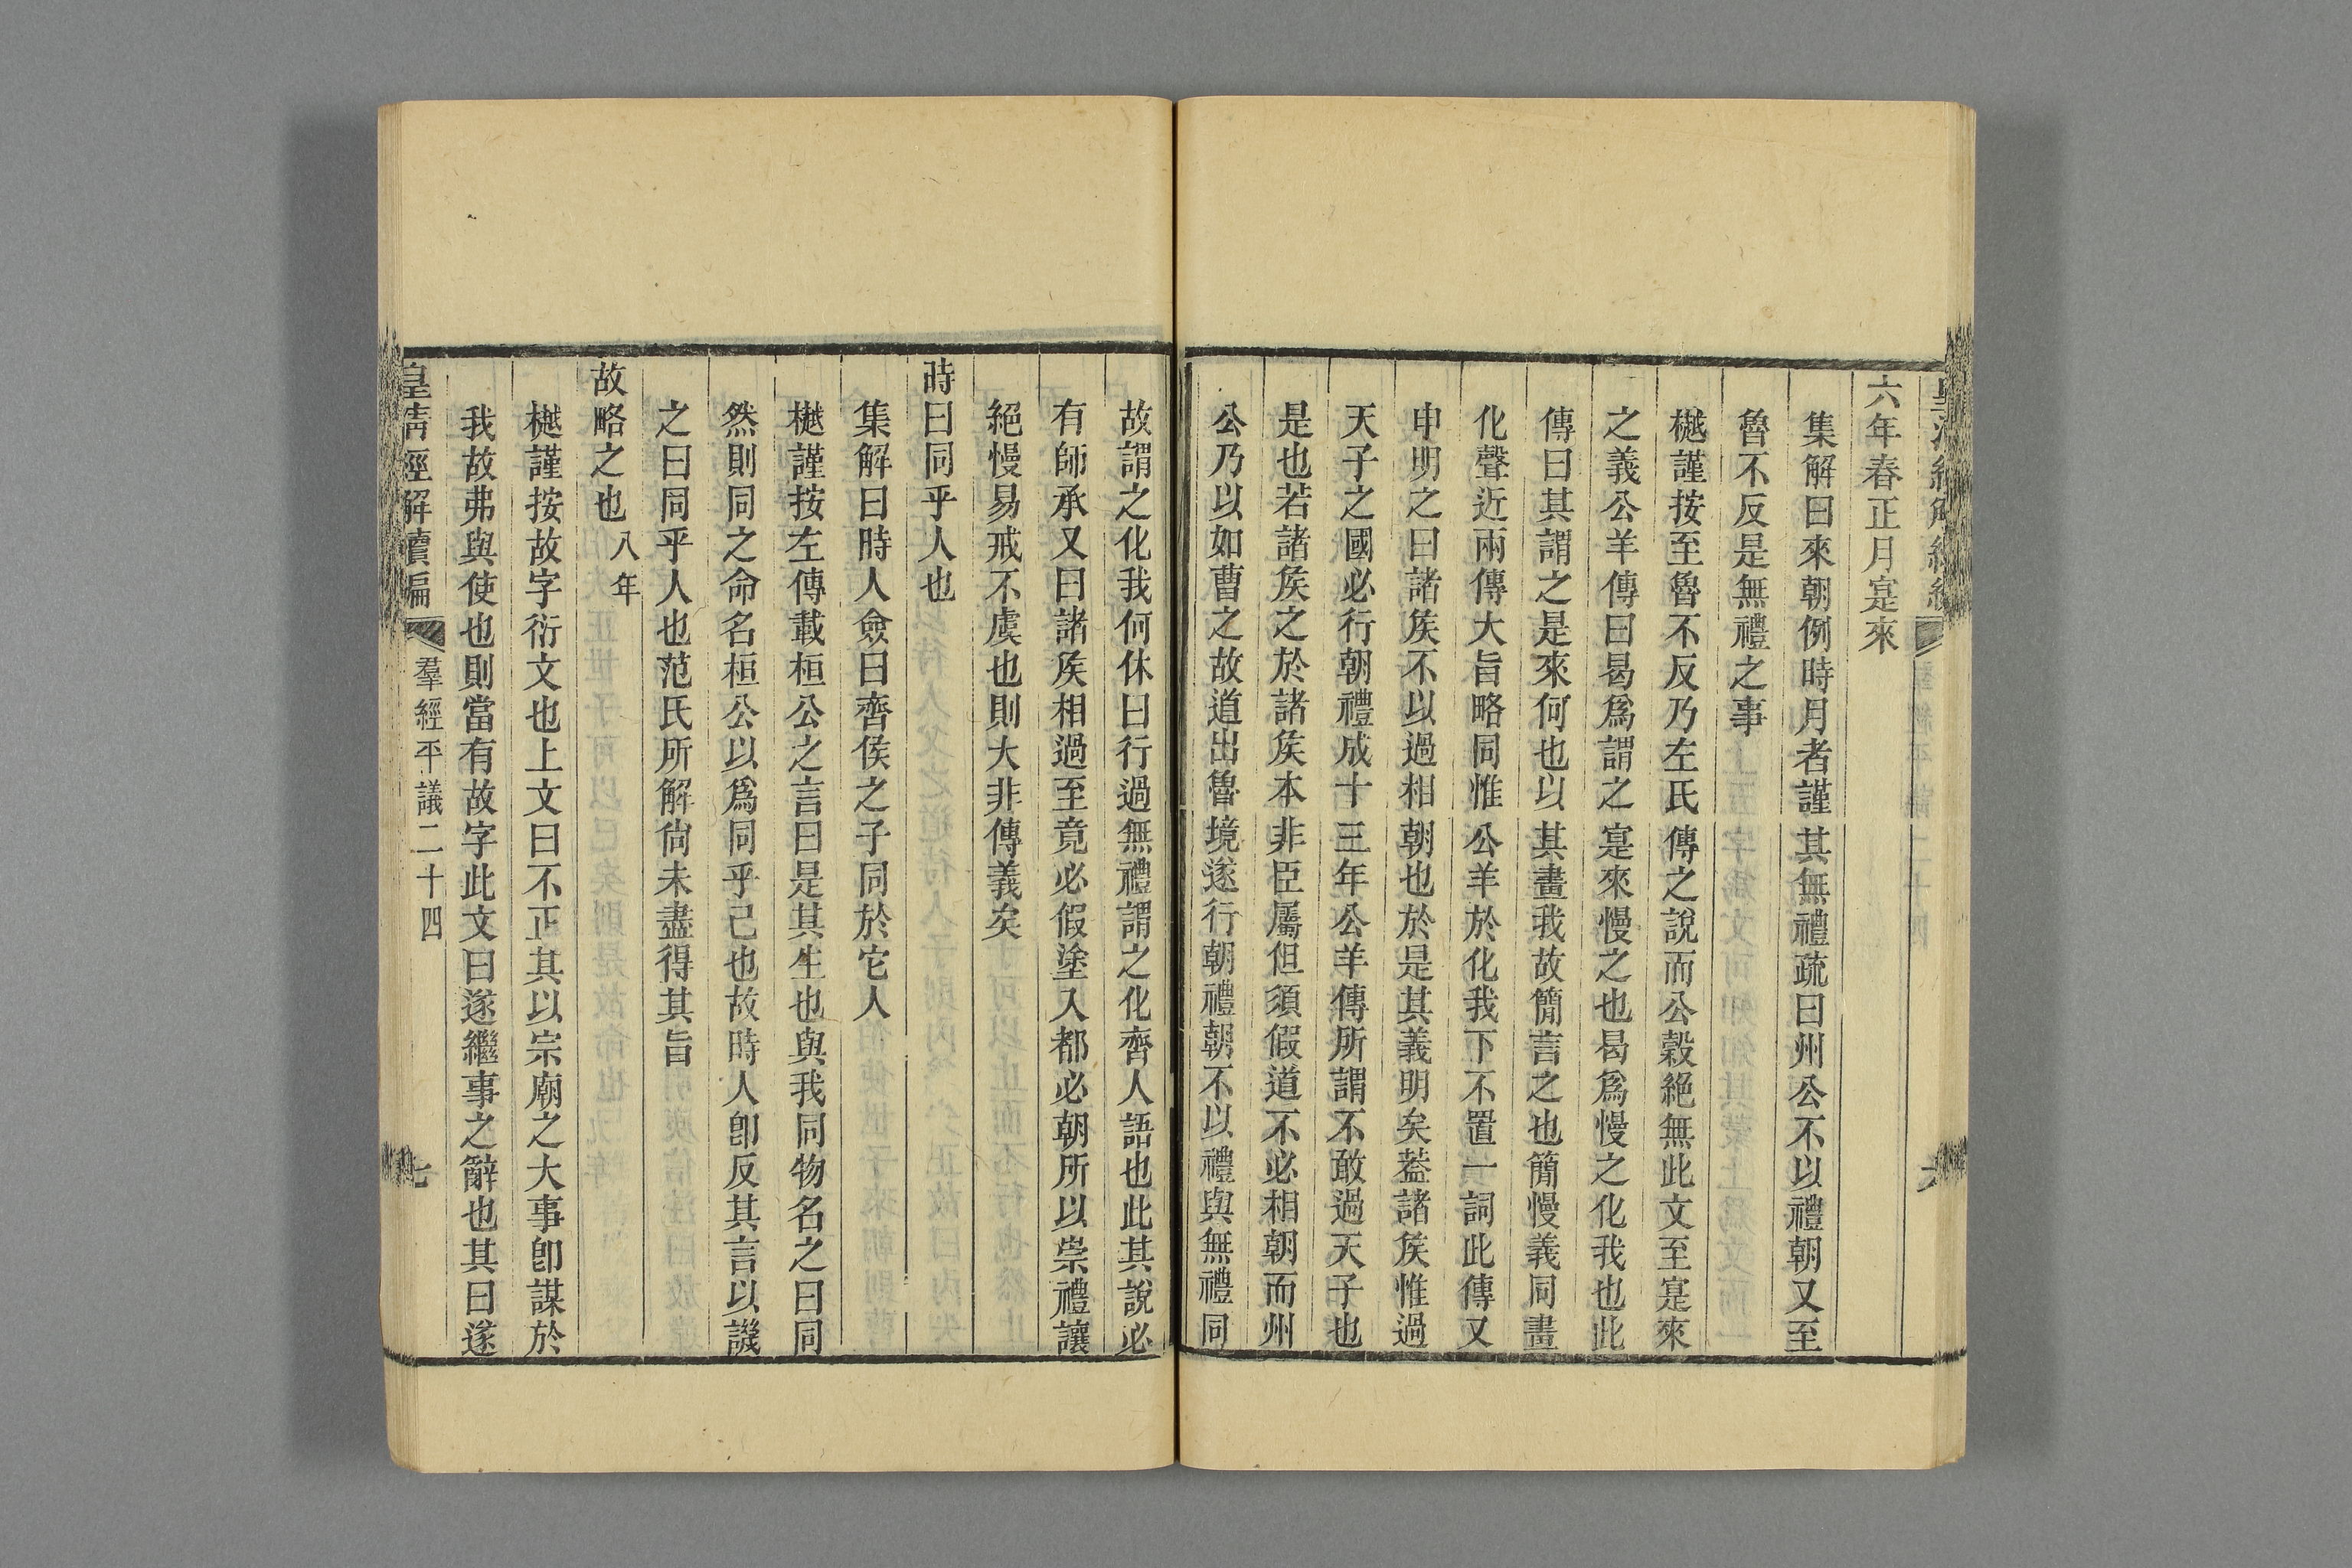 六年春正月寔來
集解曰來朝例時月者謹其無禮疏曰州公不以禮朝又至
魯不反是無禮之事
樾謹按至魯不反乃左氏傳之說而公穀絕無此文至寔來
之義公羊傳曰曷爲謂之寔來慢之也曷爲慢之化我也此
傳曰其謂之是來何也以其畫我故簡言之也簡慢義同畫
化聲近兩傳大旨略同惟公羊於化我下不置一詞此傳又
申明之曰諸矦不以過相朝也於是其義明矣葢諸矦惟過
天子之國必行朝禮成十三年公羊傳所謂不敢過天子也
是也若諸矦之於諸矦本非臣屬但須假道不必相朝而州
公乃以如曹之故道出魯境遂行朝禮朝不以禮與無禮同
故謂之化我何休曰行過無禮謂之化齊人語也此其說必
有師承又曰諸矦相過至竟必假塗入都必朝所以崇禮讓
絕慢易戒不虞也則大非傳義矣
時曰同乎人也
集解曰時人僉曰齊侯之子同於它人
樾謹按左傳載桓公之言曰是其生也與我同物名之曰同
然則同之命名桓公以爲同乎己也故時人卽反其言以譏
之曰同乎人也范氏所解尙未盡得其旨
故略之也八年
樾謹按故字衍文也上文曰不正其以宗廟之大事卽謀於
我故弗與使也則當有故字此文曰遂繼事之辭也其曰遂
皇清經解續編 羣經平議二十四 七